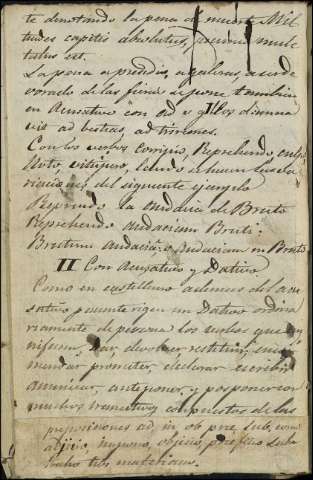 te denotando la pena de muerte Mil
tiades capitis absolutus, pecunia mulc
tatus est.
La pena a predios, a galeras, a ser de
vorado de las fieras se pone tambien
en Acusativo con ad
ad bestias, ad triremes.
Con los verbos corrigio, Reprehendo
vitupero, se hacen las va
riaciones del siguiente ejemplo
Reprendo la Audacia de Bruto
Reprehendo Audaciam Bruti:
Brutum Audaciae: Audaciam in Bruto
II Con Acusativo y Dativo
Como en castellano ademas del acu
sativo paciente rigen un Dativo ordina
riamente de persona los verbos que
nifican, dar, devolver, restituir,
mendar, prometer, declarar, escribir
anunciar, anteponer, y posponer con
muchos transitivos compuestos de las
preposiciones ad, in, ob, prae, sub, como
adjicio, impono, objicio, praeficio